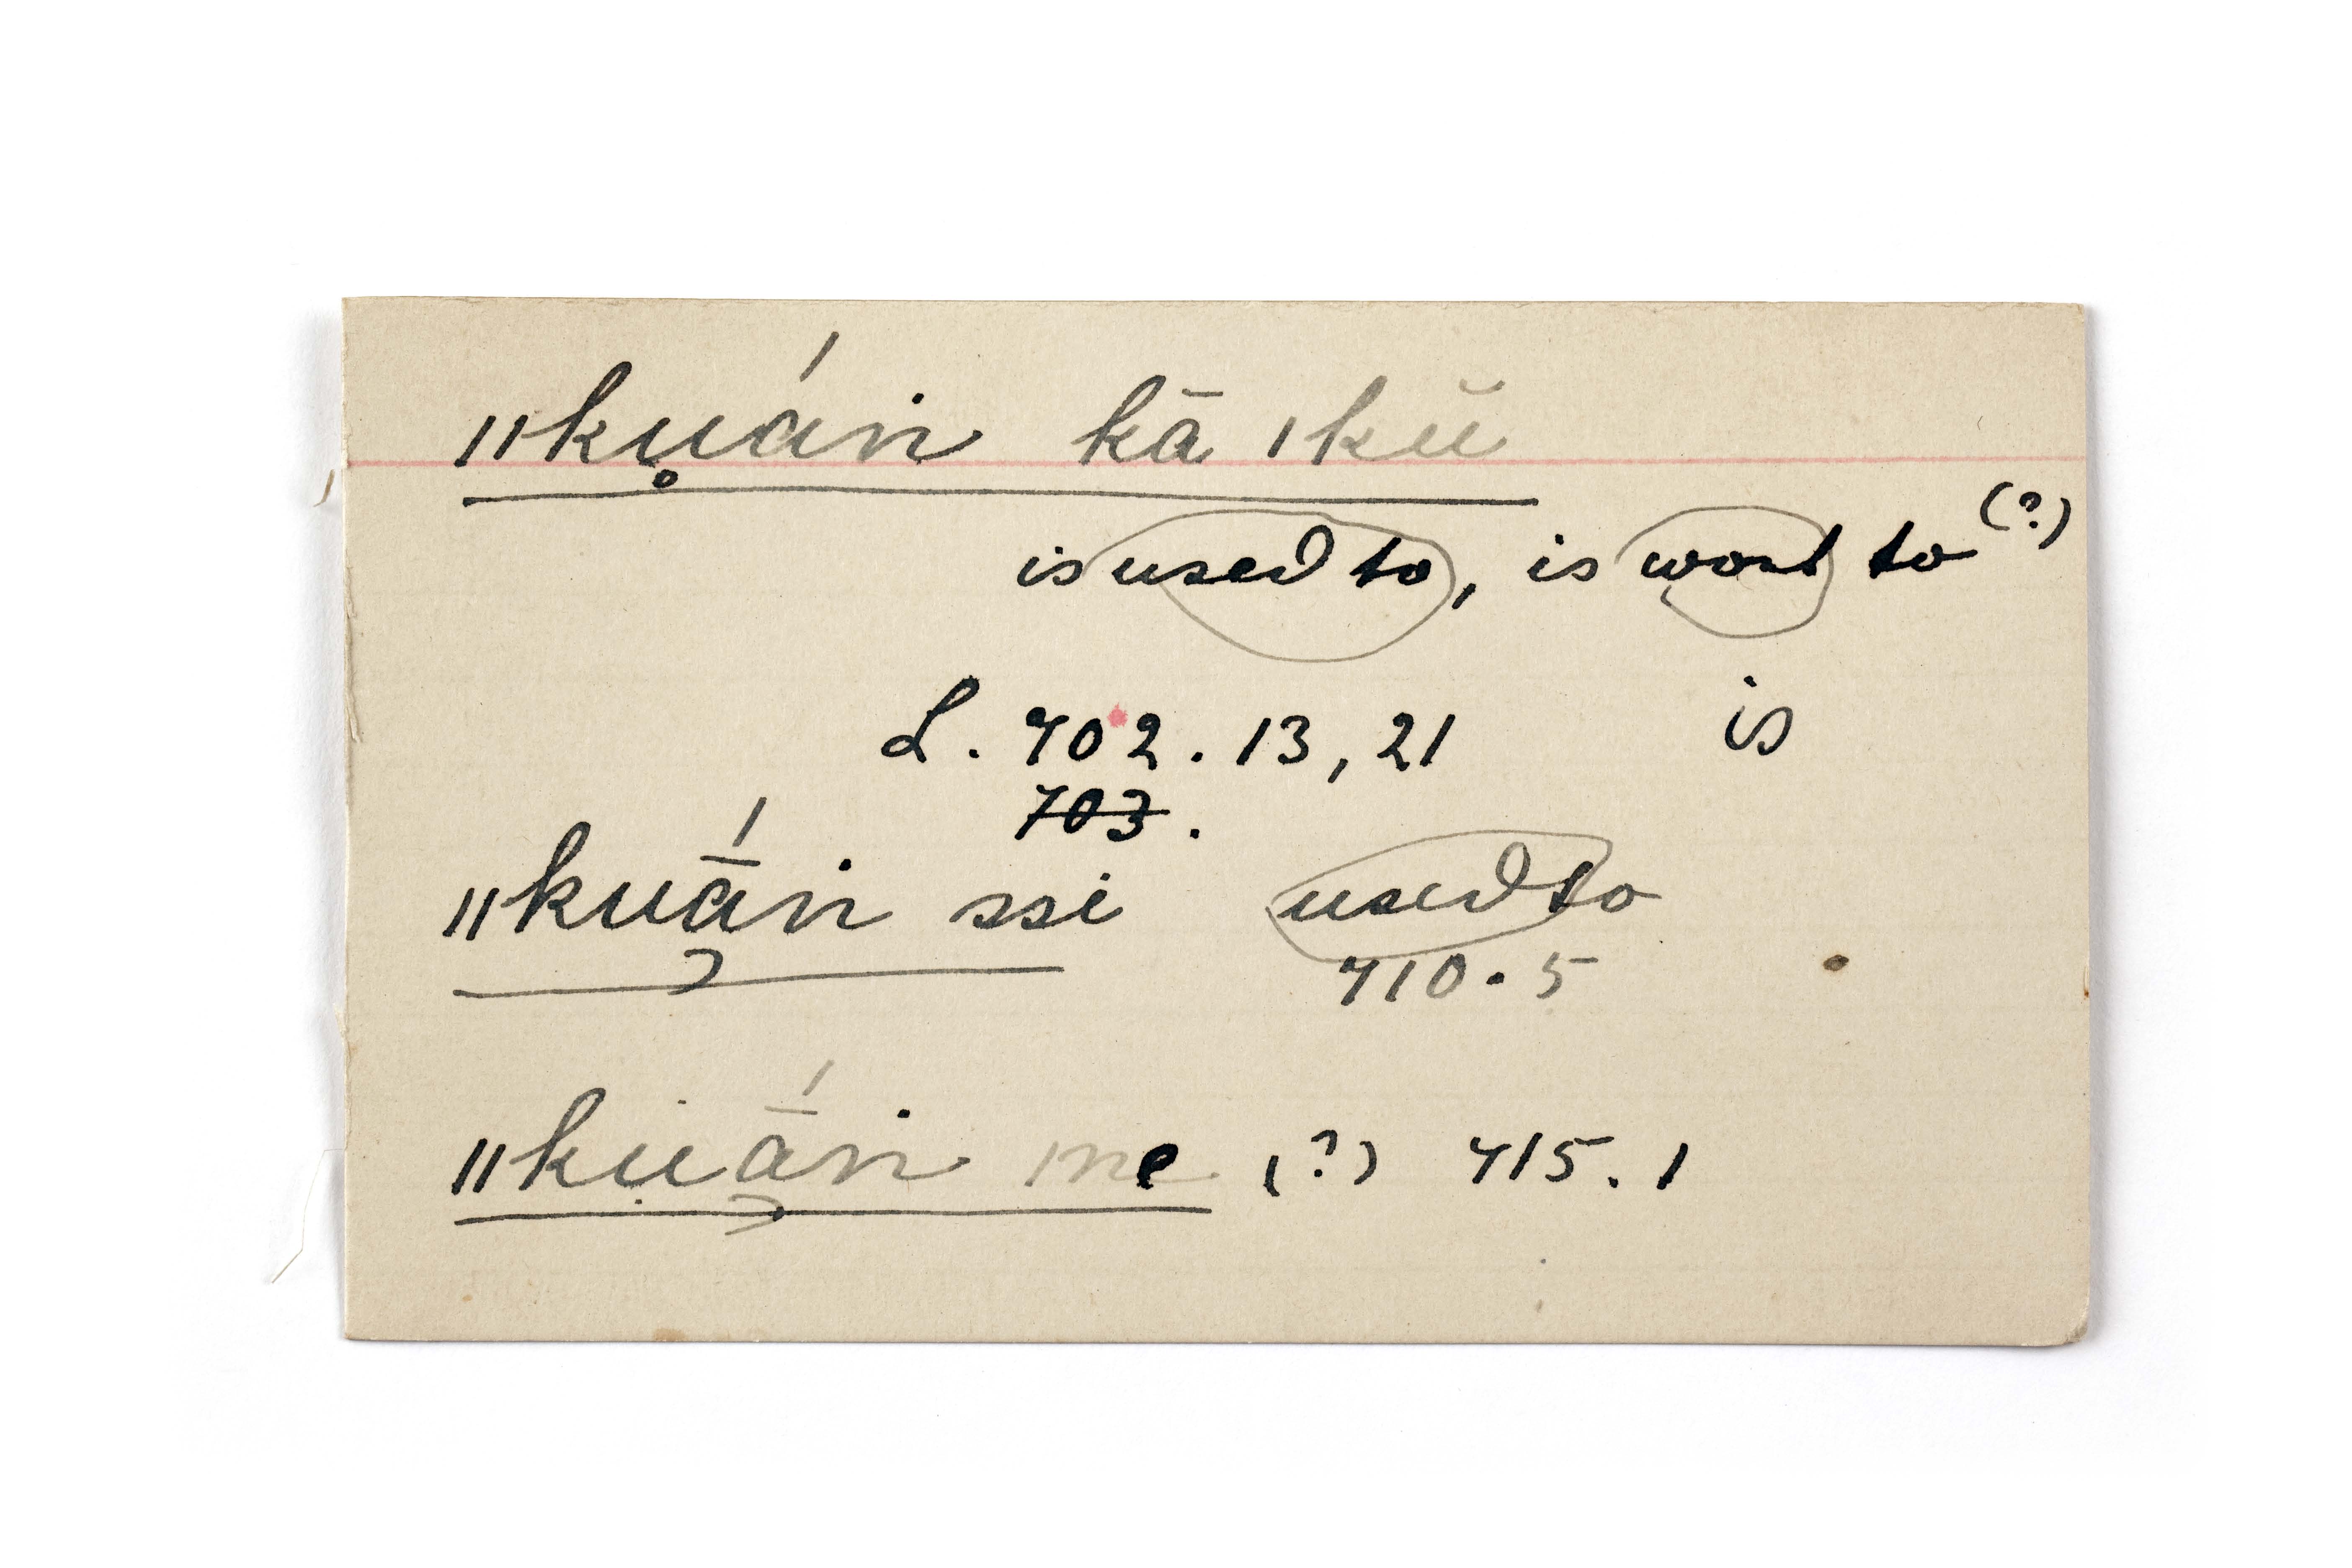 ǁku̥án kā ǀkŭ
is used to, is wont to (?)
L. 702. 13, 21 is
703.
ǁkuā́n ssi used to
710. 5
ǁkuā́n ǀne (?) 715. 1